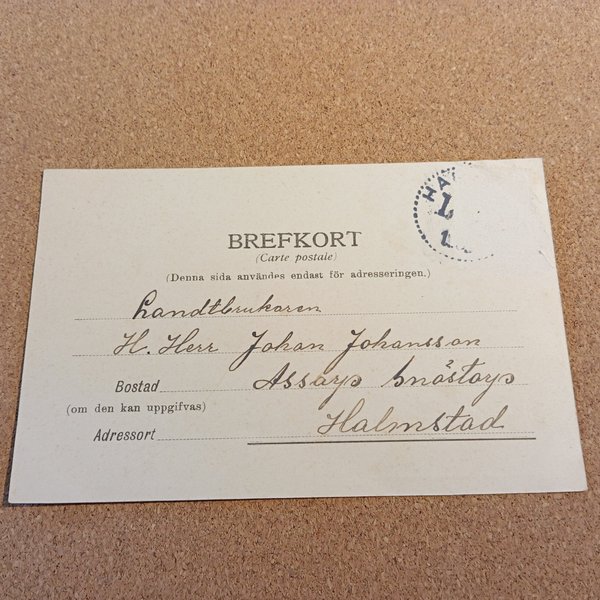 HA
BREFKORT
(Carte postale)
(Denna sida användes endast för adresseringen.)
Landtbrukaren
H. Herr Johan Johansson
Bostad Assarps
(om den kan uppgifvas)
Adressort Halmstad